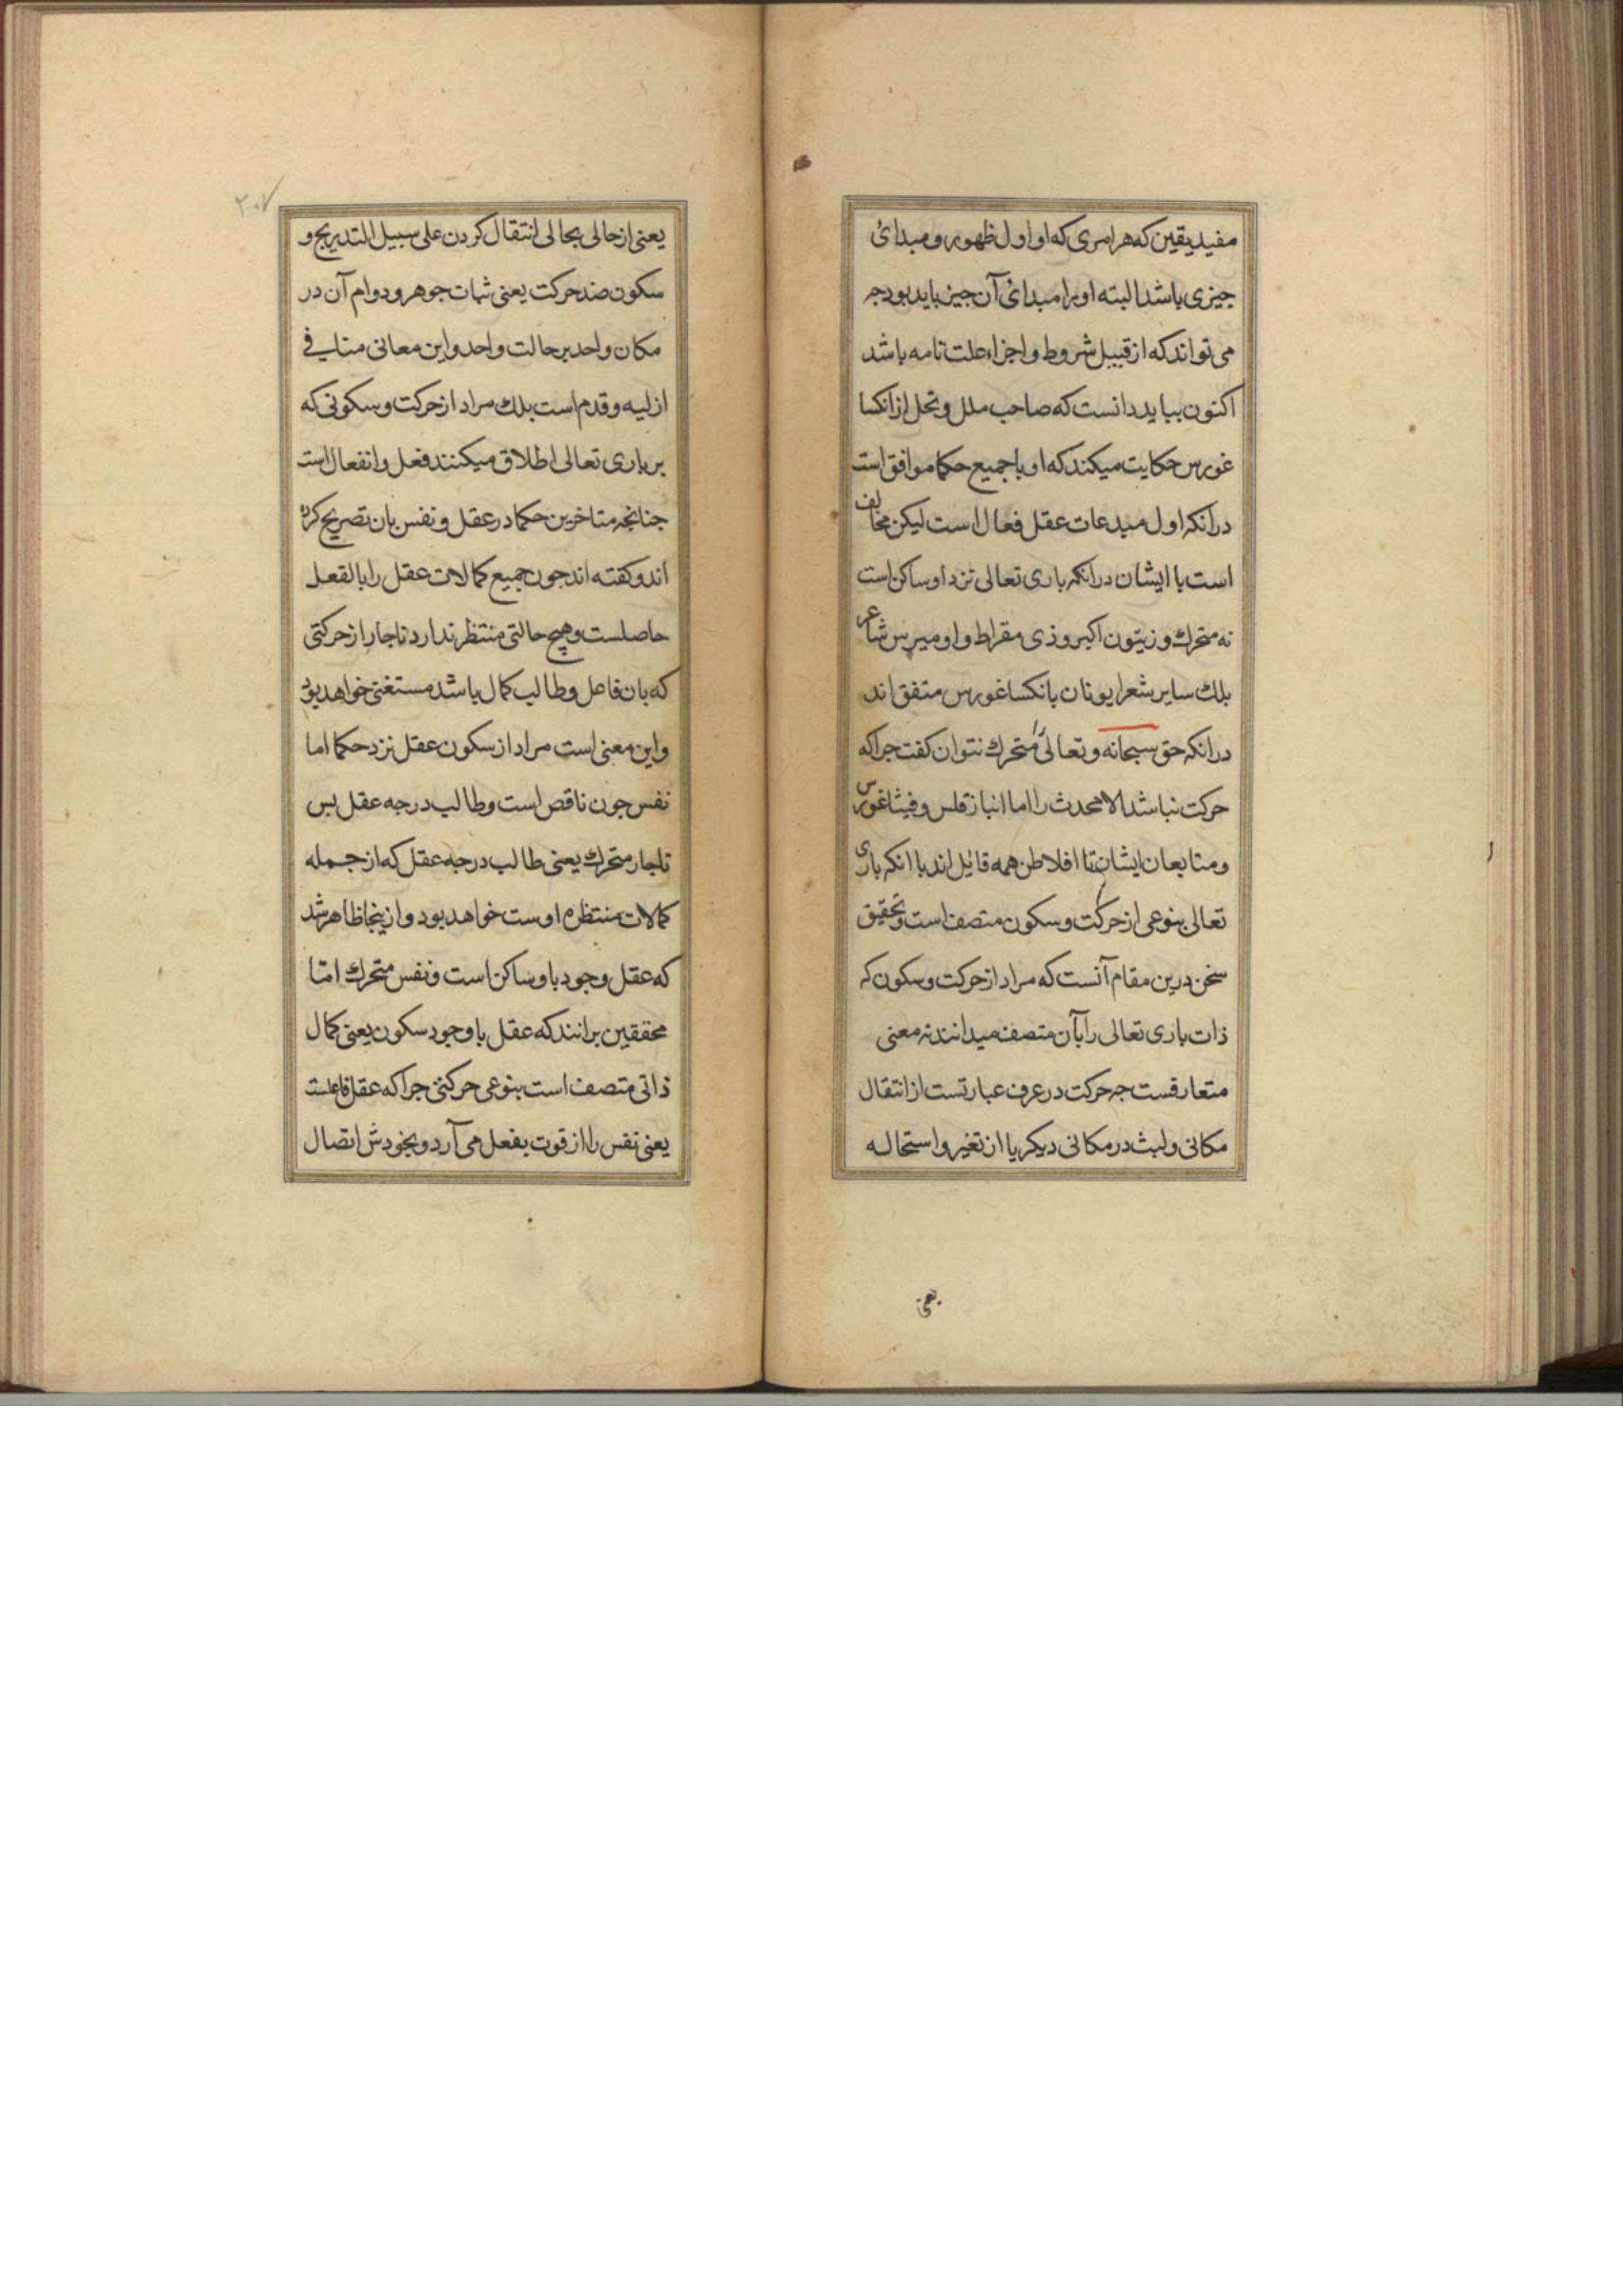 مفید یقین که هر امری که او اول ظهور و مبدائ
جیزی باشد البته او را مبدائ آن جیز باید بود جه
می تواند که از قبیل شروط و اجزاء علت تامه باشد
اکنون بباید دانست که صاحب ملل و نحل از انکسا
غورس حکایت میکند که او با جمیع حکما موافق است
در آنکه اول مبدعات عقل فعال است لیکن مخالف
است با ایشان در انکه باری تعالی نزد او ساکن است
نه متحرک و زیتون اکبر و ذی مقراط و اومیرس شاعر
بلک سایر شعرا یونان با نکساغورس متفق اند
در انکه حق سبحانه و تعالی را متحرک نتوان کفت جرا که
حرکت نباشد الا محدث را اما انباز قلس و فیثاغورس
و متابعان ایشان تا افلاطن همه قایل اند با انکه باری
تعالی بنوعی از حرکت و سکون متصف است و تحقیق
سخن درین مقام آنست که مراد از حرکت و سکون که
ذات باری تعالی را بآن متصف میدانند نه معنی
متعارفست جه حرکت در عرف عبارتست از انتقال
مکانی و لبث در مکانی دیکر یا از تغیر و استحاله
یعنی
۲۰۷
یعنی از حالی بحالی انتقال کردن علی سبیل التدریج و
سکون ضد حرکت یعنی ثبات جوهر و دوام آن در
مکان واحد بر حالت واحد و این معانی منافی
ازلیه و قدم است بلک مراد از حرکت و سکونی که
بر باری تعالی اطلاق میکنند فعل و انفعال است
جنانجه متاخرین حکما در عقل و نفس بان تصریح کرده
اند و کفته اند جون جمیع کمالات عقل را بالفعل
حاصلست و هیچ حالتی منتظر ندارد ناجار از حرکتی
که بان فاعل و طالب کمال باشد مستغنی خواهد بود
و این معنی است مراد از سکون عقل نزد حکما اما
نفس جون ناقص است و طالب درجه عقل بس
ناجار متحرک یعنی طالب درجه عقل که از جمله
کمالات منتظره اوست خواهد بود و ازینجا ظاهر شد
که عقل وجود با و ساکن است و نفس متحرک امّا
محققین برانند که عقل با وجود سکون یعنی کمال
ذاتی متصف است بنوعی حرکتی جرا که عقل فاعلست
یعنی نفس را از قوت بفعل می آرد و بخودش اتصال